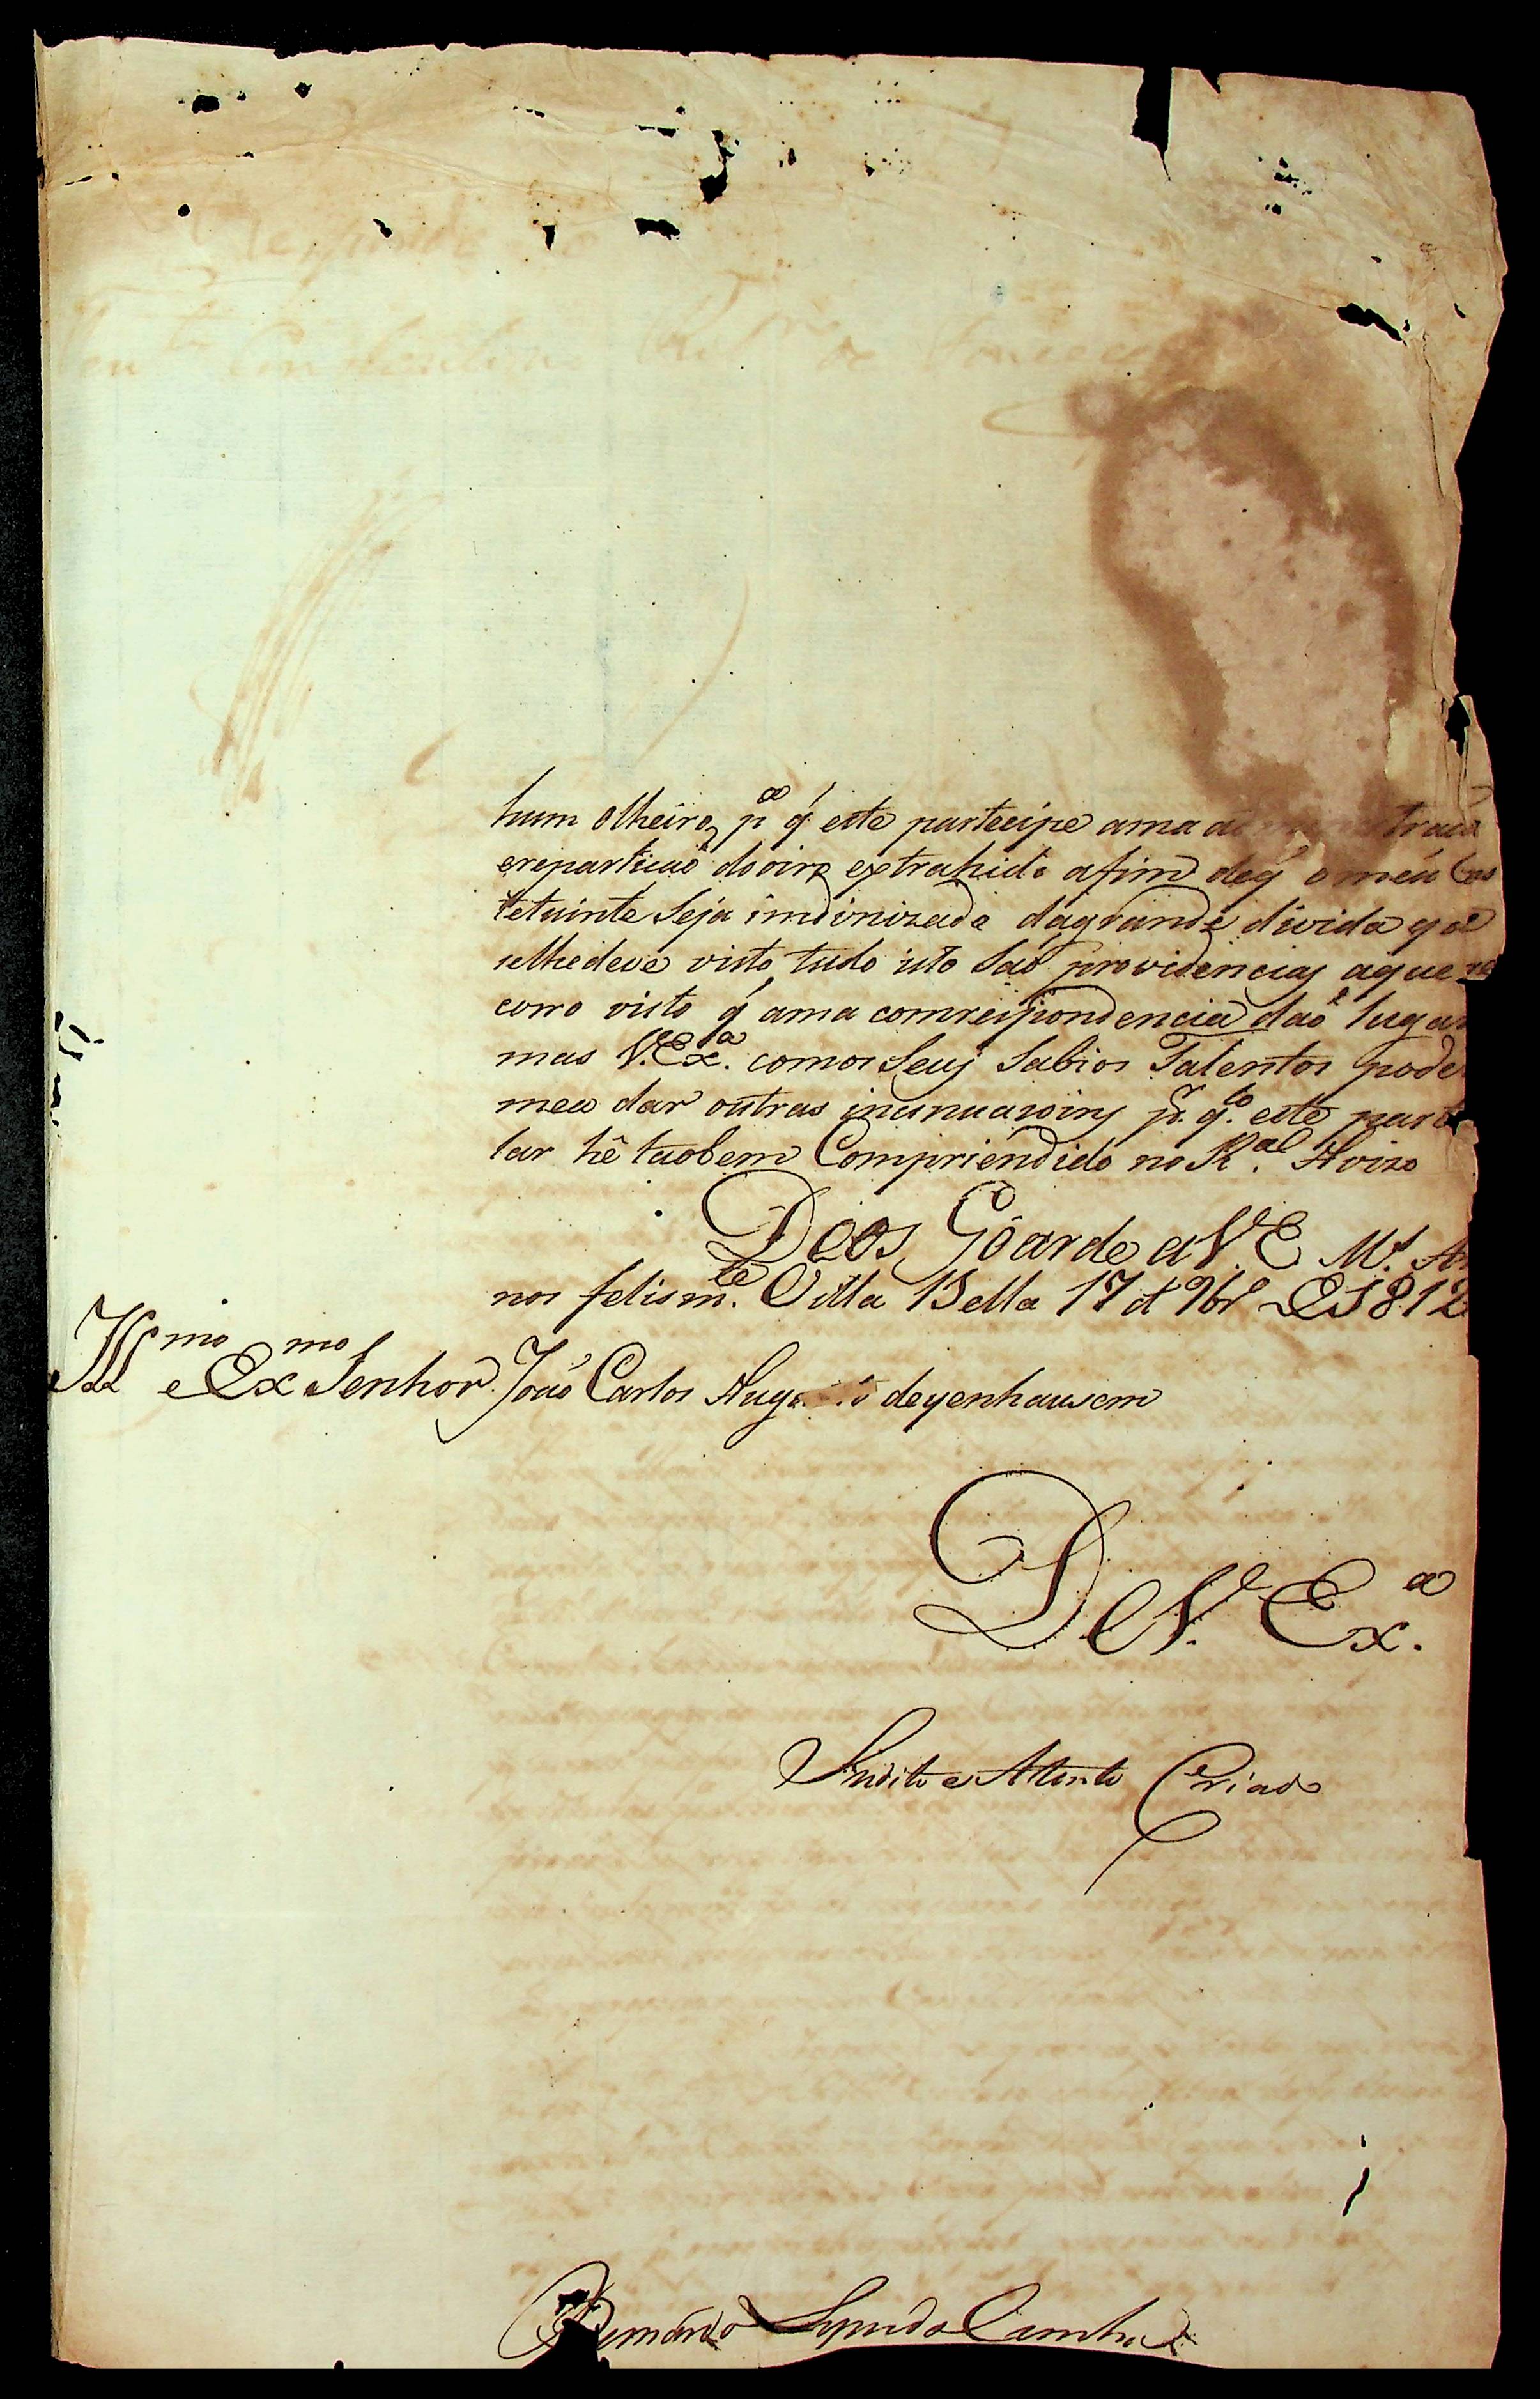 hum olheiro, pª q́ este partecipe ama
erepartiçaõ do oiro extrahido afim deq́ o meu Cos
tetuinte Seja imdinizado dagrande divida que
selhedeve visto tudo isto Saõ providencias aque re
corro visto q́ ama comrespondencia daõ lugar
mas V. Exª. comos Seus Sabios Talentos pode
mea dar outras incinuasoins pª. q.º este parti
lar hê taobem Compriendido no R.al Avizo
Deos Goarde a V E M.s An
nos felism.te Villa Bella 17 de 9br.º de 1812
Ill.mo e Ex.mo Senhor João Carlos Augusto deyenhausem
De V. Ex.ª
Sudito e Atento Criado
Bernardo